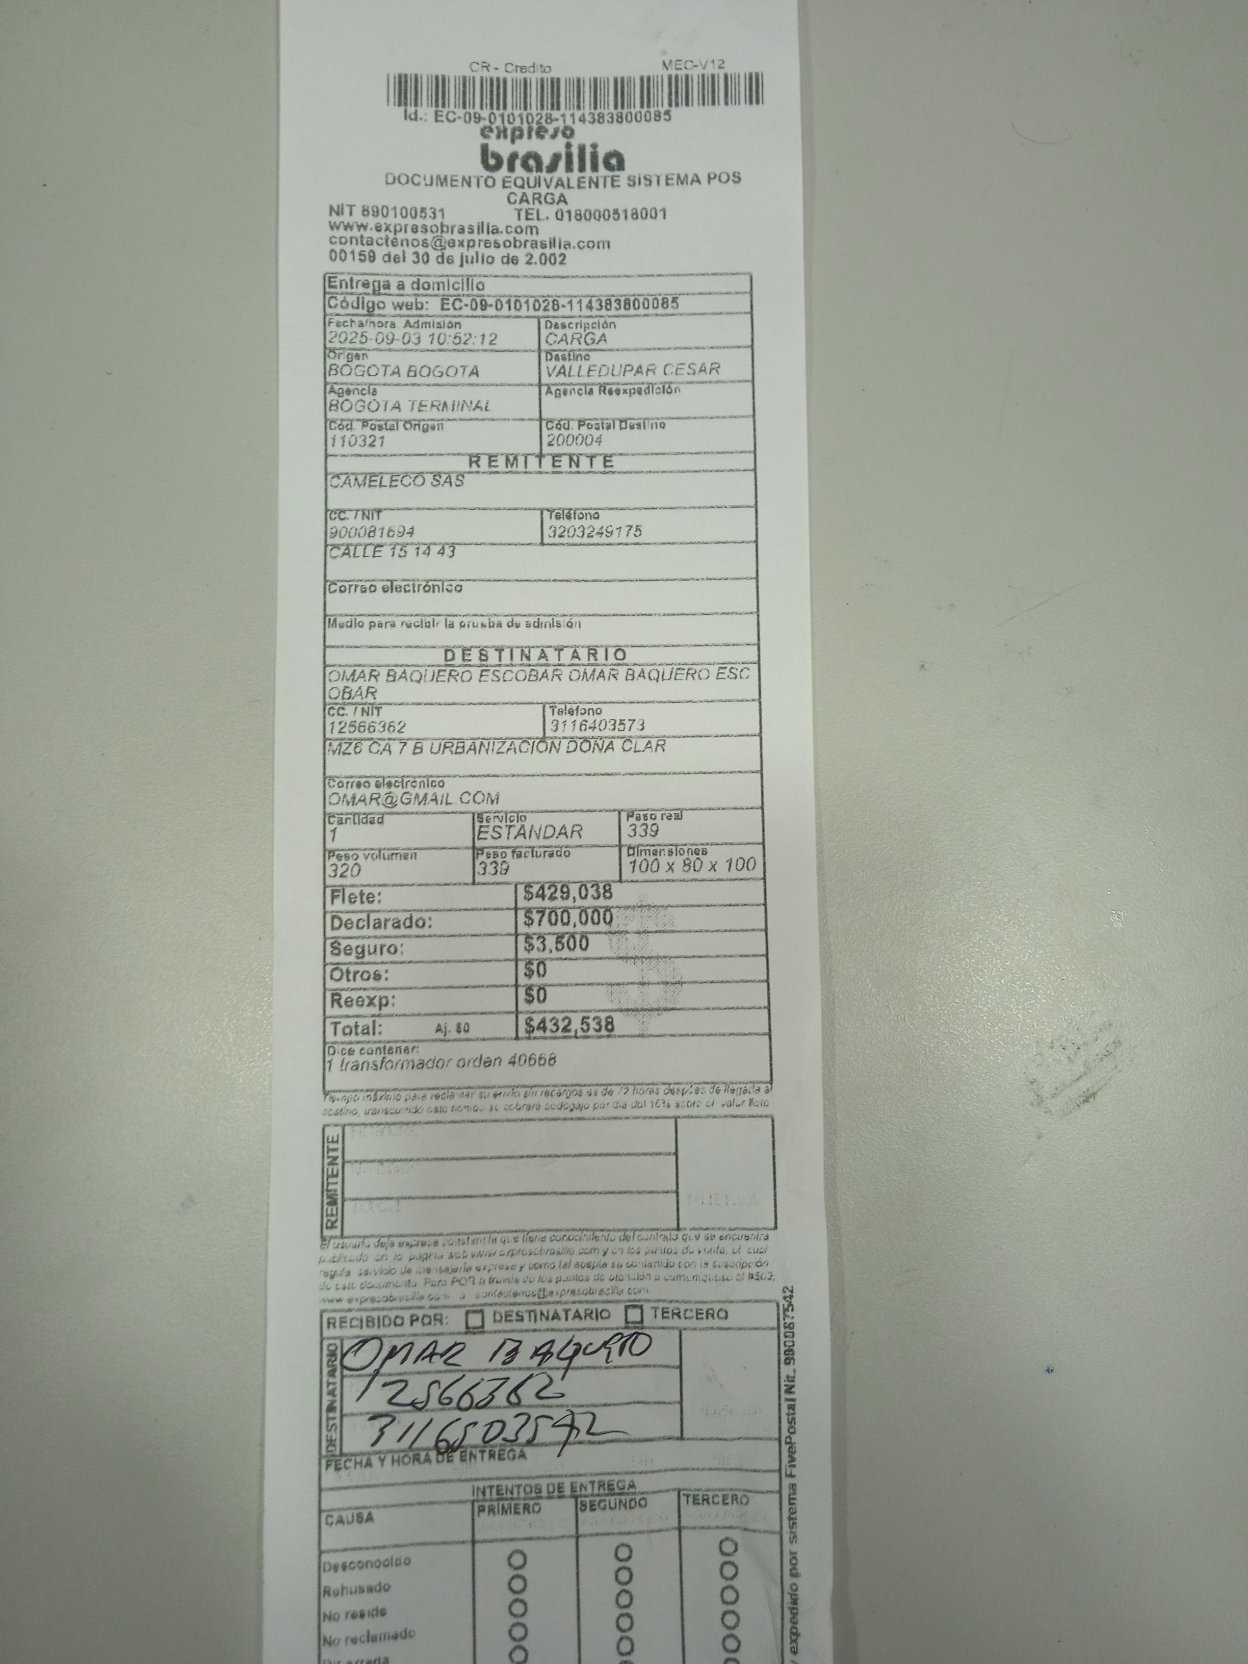 CR - Credito MEC-V12
Id.: EC-09-0101028-114383800085
expreso
brasilia
DOCUMENTO EQUIVALENTE SISTEMA POS
CARGA
NIT 890100531 TEL. 018000518001
www.expresobrasilia.com
contactenos@expresobrasilia.com
00159 del 30 de julio de 2.002
Entrega a domicilio
Código web: EC-09-0101028-114383800085
Fecha/hora Admisión Descripción
2025-09-03 10:52:12 CARGA
Origen Destino
BOGOTA BOGOTA VALLEDUPAR CESAR
Agencia Agencia Reexpedición
BOGOTA TERMINAL
Cód. Postal Origen Cód. Postal Destino
110321 200004
REMITENTE
CAMELECO SAS
CC. / NIT Teléfono
900081694 3203249175
CALLE 15 14 43
Correo electrónico
Medio para recibir la prueba de admisión
DESTINATARIO
OMAR BAQUERO ESCOBAR OMAR BAQUERO ESC
OBAR
CC. / NIT Teléfono
12566362 3116403573
MZ6 CA 7 B URBANIZACION DOÑA CLAR
Correo electrónico
OMAR@GMAIL.COM
Cantidad Servicio Peso real
1 ESTANDAR 339
Peso volumen Peso facturado Dimensiones
320 339 100 x 80 x 100
Flete: $429,038
Declarado: $700,000
Seguro: $3,500
Otros: $0
Reexp: $0
Total: Aj. $0 $432,538
Dice contener:
1 transformador orden 40668
Tiempo máximo para reclamar su envío sin recargos es de 72 horas después de llegada a
destino, transcurrido este tiempo se cobrará bodegaje por día del 10% sobre el valor flete
REMITENTE
El usuario deja expresa constancia que tiene conocimiento del contrato que se encuentra
publicado en la página web www.expresobrasilia.com y en los puntos de venta, el cual
regula servicio de mensajería expresa y como tal acepta su contenido con la suscripción
de este documento. Para PQR a través de los puntos de atención o comuníquese al #502,
www.expresobrasilia.com o contactenos@expresobrasilia.com.
RECIBIDO POR: DESTINATARIO TERCERO
DESTINATARIO
OMAR BAQUERO
12566362
3116503542
FECHA Y HORA DE ENTREGA
INTENTOS DE ENTREGA
CAUSA PRIMERO SEGUNDO TERCERO
Desconocido
Rehusado
No reside
No reclamado
y expedido por sistema FivePostal Nit. 990087542